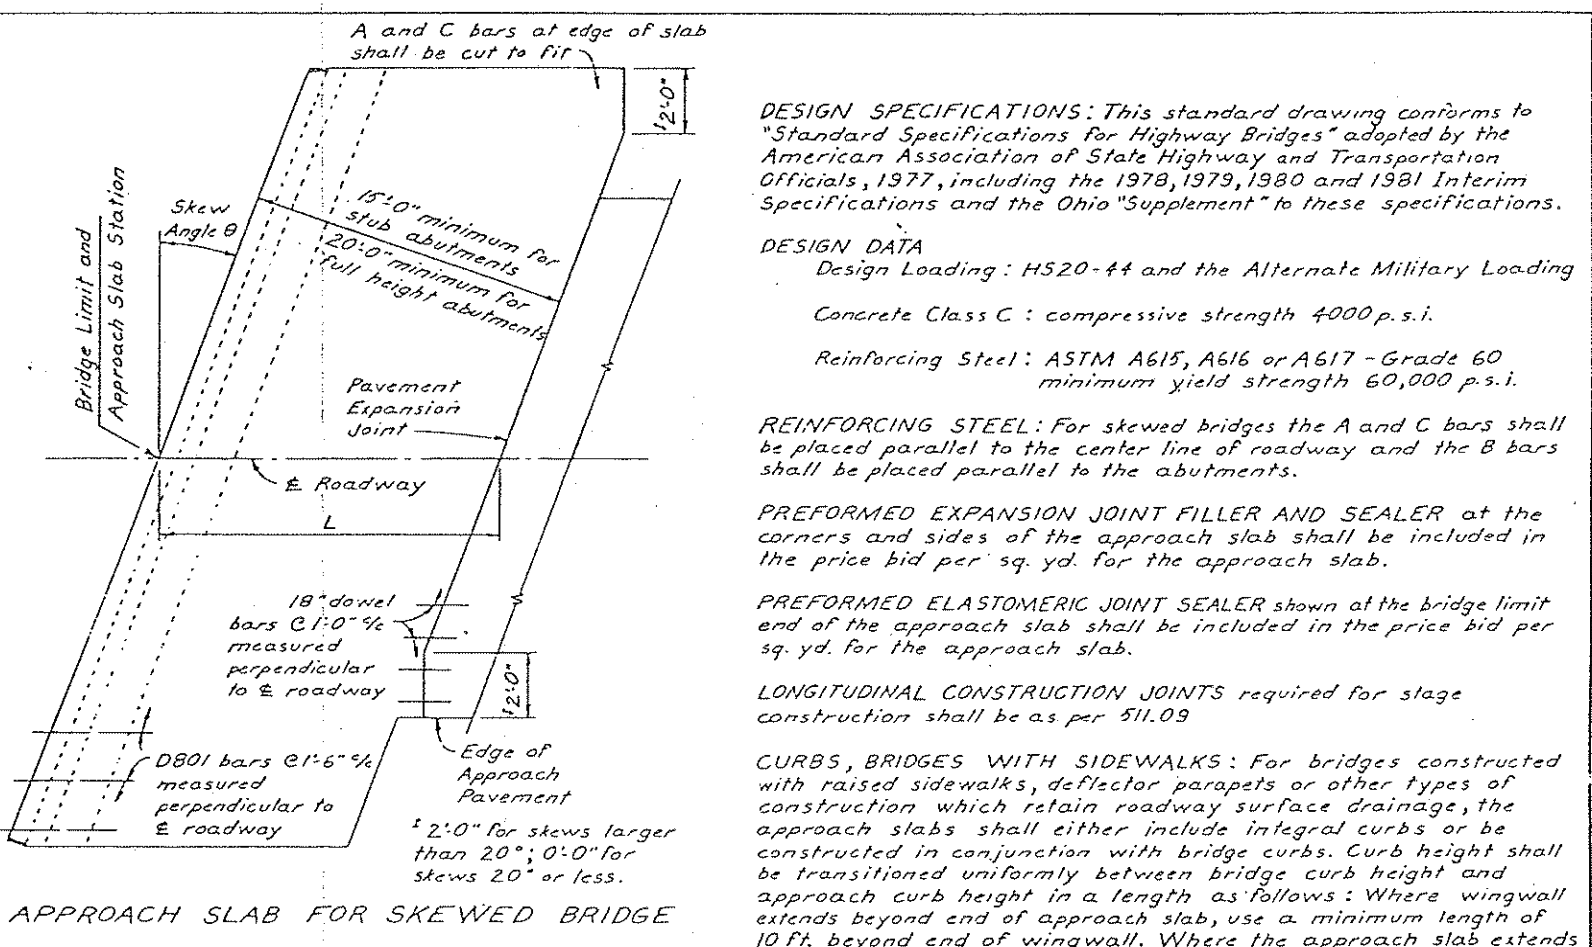 A and C bars at edge of slab
shall be cut to fit
‡2'-0"
Bridge Limit and
Approach Slab Station
Skew
Angle θ
15'-0" minimum for
stub abutments
20'-0" minimum for
full height abutments
Pavement
Expansion
Joint
℄ Roadway
L
18" dowel
bars @ 1'-0" c/c
measured
perpendicular
to ℄ roadway
‡2'-0"
D801 bars @ 1'-6" c/c
measured
perpendicular to
℄ roadway
Edge of
Approach
Pavement
‡ 2'-0" for skews larger
than 20°; 0'-0" for
skews 20° or less.
APPROACH SLAB FOR SKEWED BRIDGE
DESIGN SPECIFICATIONS: This standard drawing conforms to
"Standard Specifications for Highway Bridges" adopted by the
American Association of State Highway and Transportation
Officials, 1977, including the 1978, 1979, 1980 and 1981 Interim
Specifications and the Ohio "Supplement" to these specifications.
DESIGN DATA
Design Loading: HS20-44 and the Alternate Military Loading
Concrete Class C: compressive strength 4000 p.s.i.
Reinforcing Steel: ASTM A615, A616 or A617 - Grade 60
minimum yield strength 60,000 p.s.i.
REINFORCING STEEL: For skewed bridges the A and C bars shall
be placed parallel to the center line of roadway and the B bars
shall be placed parallel to the abutments.
PREFORMED EXPANSION JOINT FILLER AND SEALER at the
corners and sides of the approach slab shall be included in
the price bid per sq. yd. for the approach slab.
PREFORMED ELASTOMERIC JOINT SEALER shown at the bridge limit
end of the approach slab shall be included in the price bid per
sq. yd. for the approach slab.
LONGITUDINAL CONSTRUCTION JOINTS required for stage
construction shall be as per 511.09
CURBS, BRIDGES WITH SIDEWALKS: For bridges constructed
with raised sidewalks, deflector parapets or other types of
construction which retain roadway surface drainage, the
approach slabs shall either include integral curbs or be
constructed in conjunction with bridge curbs. Curb height shall
be transitioned uniformly between bridge curb height and
approach curb height in a length as follows: Where wingwall
extends beyond end of approach slab, use a minimum length of
10 ft. beyond end of wingwall. Where the approach slab extends